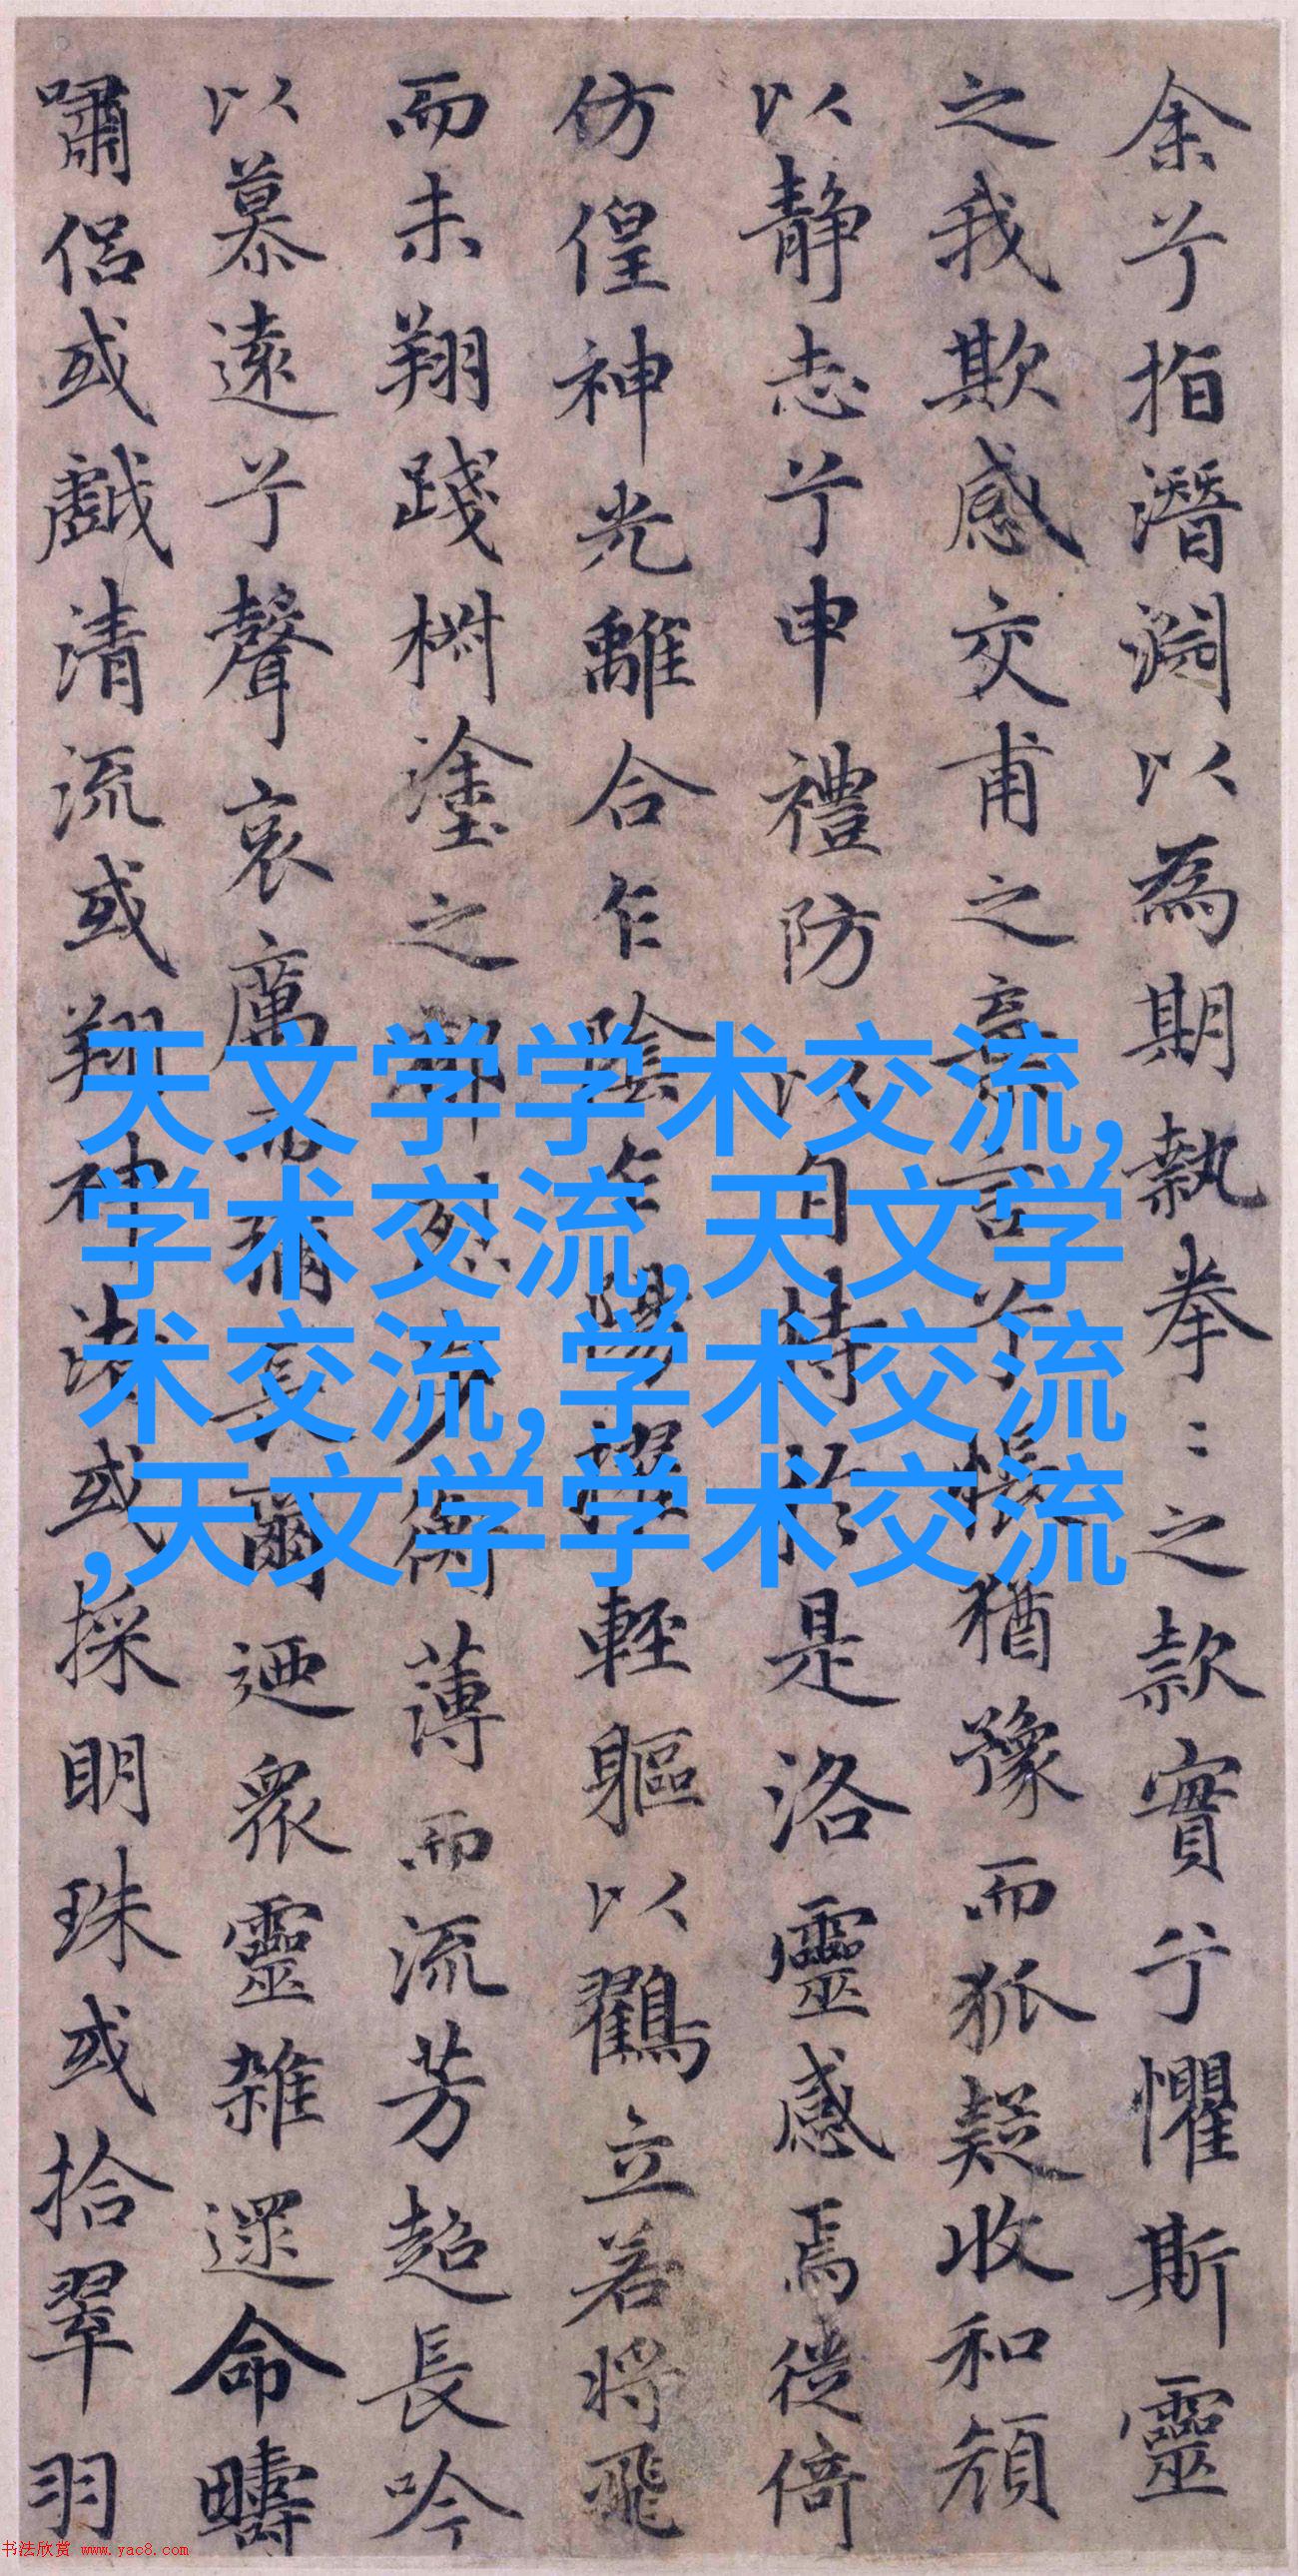 余兮指潛淵以為期執拳〻之款實兮懼斯靈
之我欺感交甫之棄言兮悵猶豫而狐疑收和顏
以靜志兮申禮防以自持於是洛靈感焉徙倚
仿偟神光離合乍陰乍陽擢輕軀以鸖立若將飛
而未翔踐椒塗之郁烈步蘅薄而流芳超長吟
以慕遠兮聲哀厲而彌長爾迺眾靈雜遝命疇
嘯侶或戲清流或翔神渚或採明珠或拾翠羽
天文学学术交流,
学术交流,天文学
术交流,学术交流
,天文学学术交流
书法欣赏 www.yac8.com